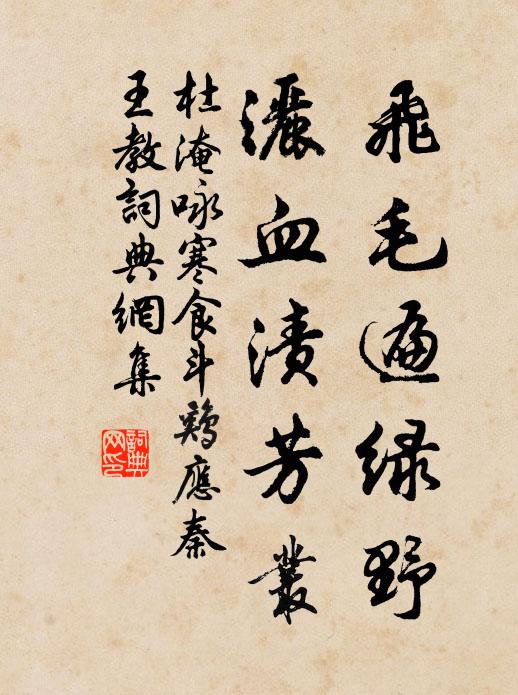 飛毛遍綠野
灑血漬芳叢
杜淹咏寒食斗鷄應秦
王教詞典網集
詞典
网印